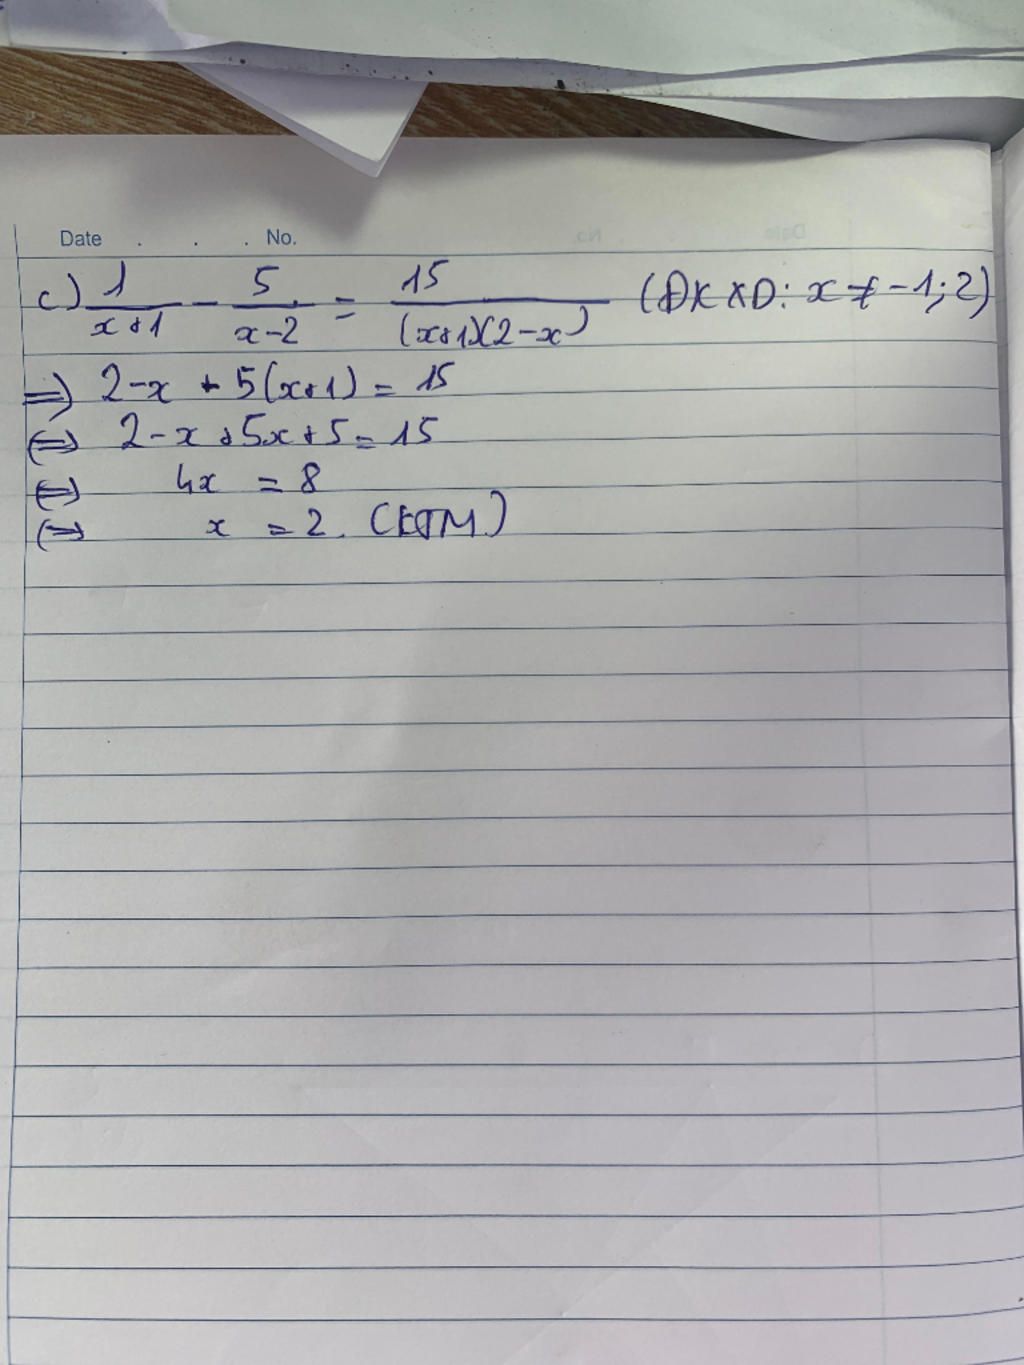 Date . . . No.
c) 1/(x+1) - 5/(x-2) = 15/((x+1)(2-x)) (ĐKXĐ: x ≠ -1; 2)
=> 2-x + 5(x+1) = 15
<=> 2-x+5x+5 = 15
<=> 4x = 8
<=> x = 2. (KTM)